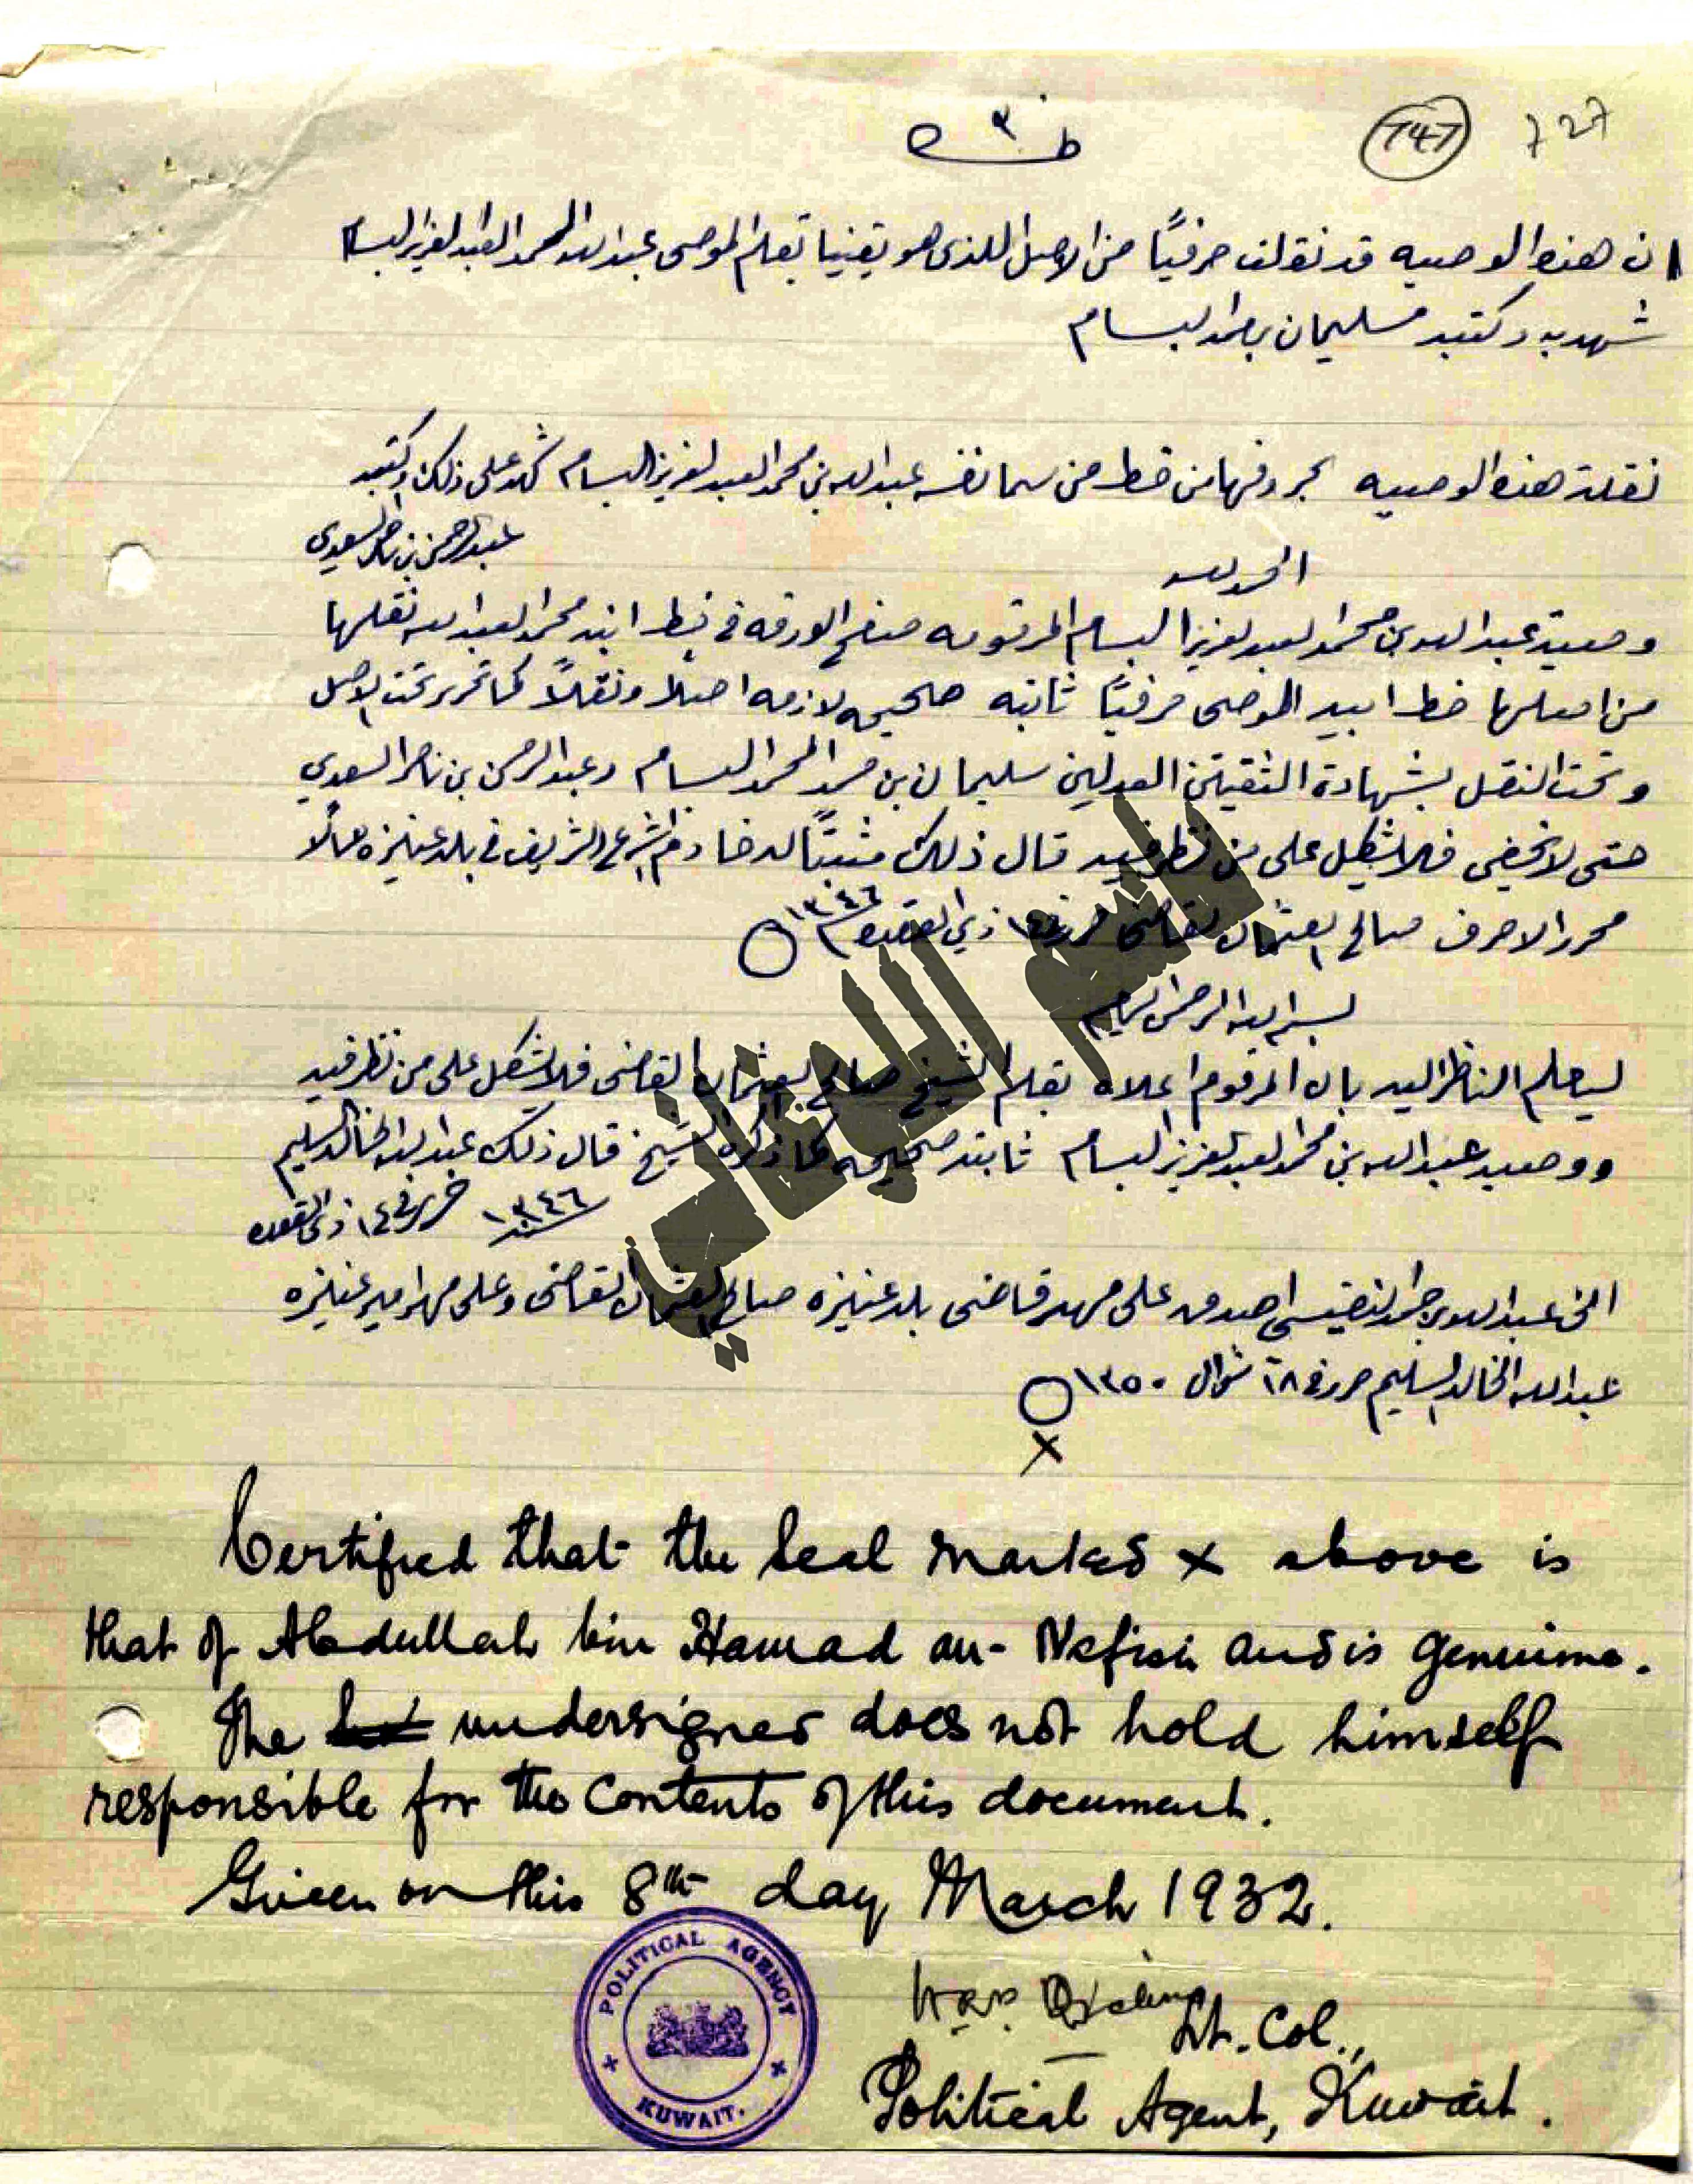 747 727
ان هذه الوصيه قد نقلت حرفيًا من الاصل اللذي هو يقينيا بقلم الموصي عبدالله المحمد العبدالعزيز البسام
شهد به وكتبه سليمان بن حمد البسام
نقلة هذه الوصيه بحروفها من خط من سما نفسه عبدالله بن محمد العبدالعزيز البسام شهد على ذلك وكتبه
عبدالرحمن بن ناصر السعدي
الحمد لله
وصية عبدالله بن محمد العبدالعزيز البسام المرقومه صفح الورقه في خط ابنه محمد العبدالله نقلها
من اصلها خط ابيه الموصي حرفيًا ثابته صحيحه لازمه اصلا ونقلاً كما تحرر تحت الاصل
وتحت النقل بشهادة الثقتين العدلين سليمان بن حمد المحمد البسام وعبدالرحمن بن ناصر السعدي
حتى لا يخفى فلا يشكل على من نظر فيه قال ذلك مثبتًا له خادم الشرع الشريف في بلد عنيزه حالًا
محرر الاحرف صالح العثمان القاضي حرر في ١٤ ذي القعده ١٣٤٦
بسم الله الرحمن الرحيم
ليعلم الناظر اليه بان المرقوم اعلاه بقلم الشيخ صالح العثمان القاضي فلا يشكل على من نظر فيه
ووصية عبدالله بن محمد العبدالعزيز البسام ثابته صحيحه كما ذكره الشيخ قال ذلك عبدالله الخالد السليم
حرر في ١٤ ذي القعده ١٣٤٦
اني عبدالله بن حمد النفيسي اصدق على مهر قاضي بلد عنيزه صالح العثمان القاضي وعلى مهر امير عنيزه
عبدالله الخالد السليم حرر في ٢٨ شوال ١٣٥٠
x
Certified that the seal marked x above is
that of Abdullah bin Hamad an-Nefisi and is genuine.
The undersigned does not hold himself
responsible for the contents of this document.
Given on this 8th day March 1932.
Lt. Col.,
Political Agent, Kuwait.
POLITICAL AGENCY
KUWAIT.